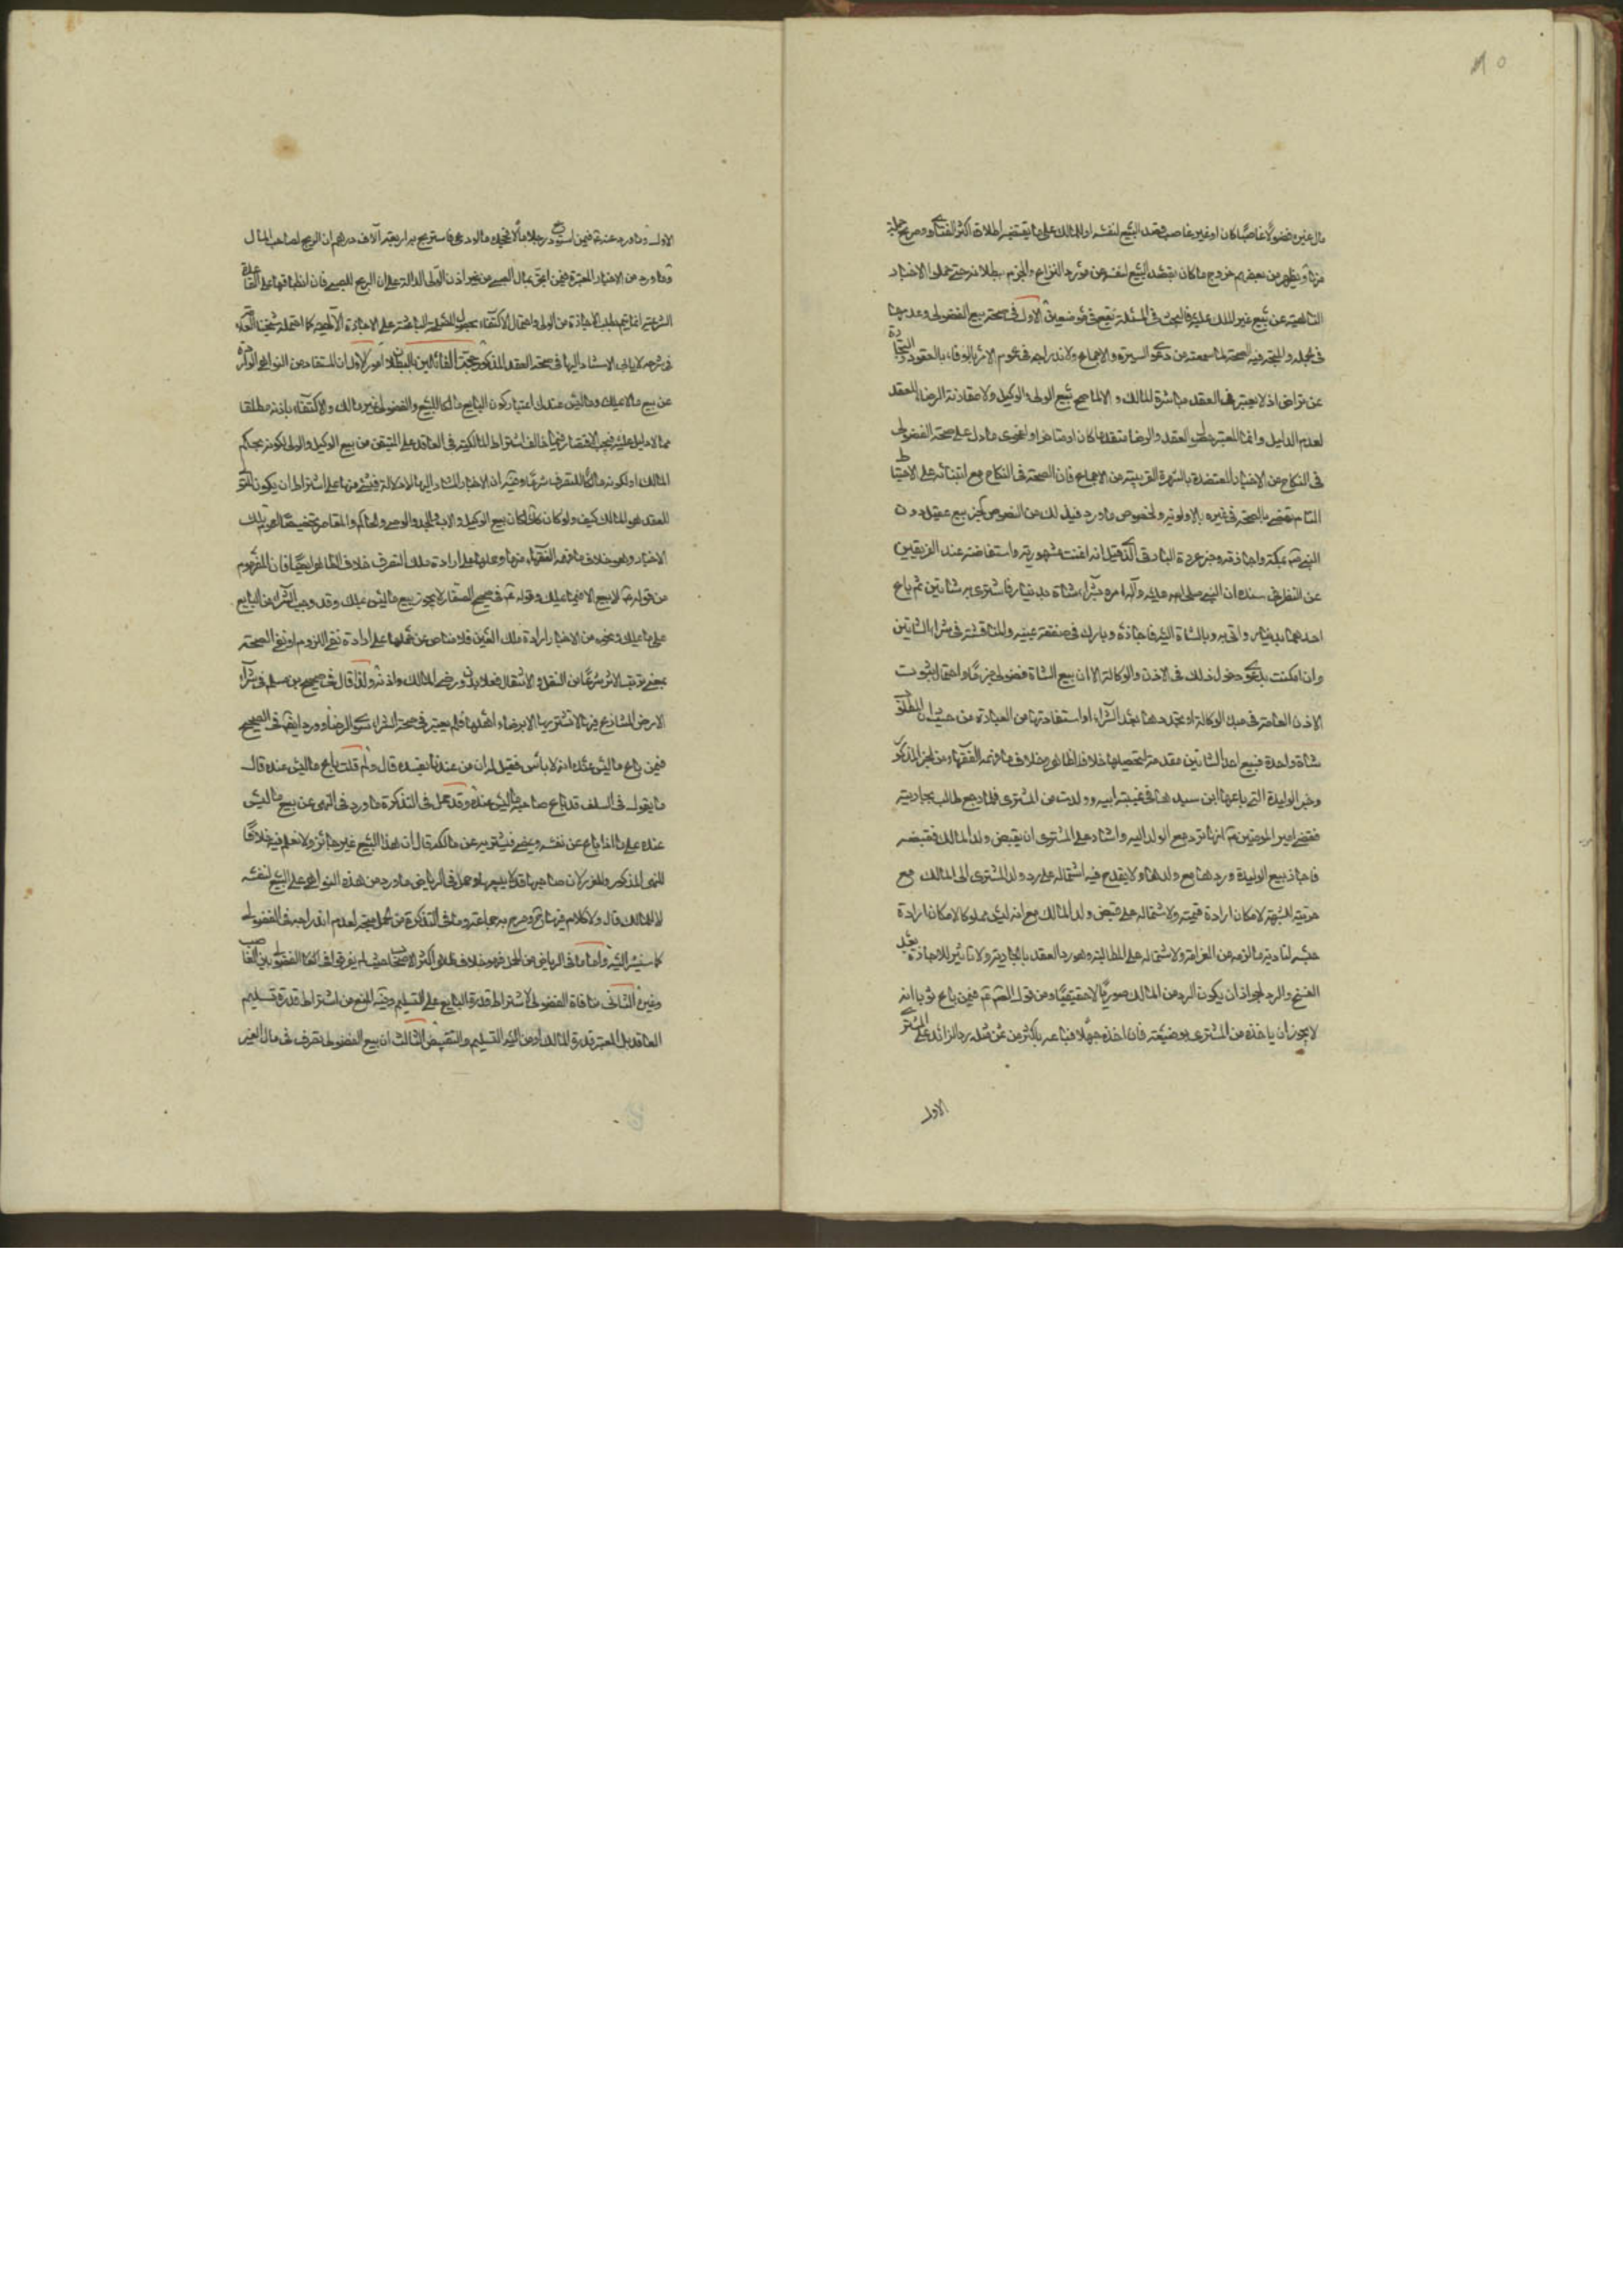 مال غيره فضولا غاصبا كان او غير غاصب قصد البيع لنفسه او للمالك على ما يقتضيه اطلاق اكثر الفتاوى وصريح جملة
منها ويظهر من بعضهم خروج ما كان بقصد البيع لنفسه عن مورد النزاع والجزم ببطلانه حتى حملوا الاخبار
الناهية عن بيع غير الملك عليه فالبحث في المسئلة يقع في موضعين الاول في صحة بيع الفضولي وعدمها
في الجملة والمتجه فيه الصحة لما سمعته من دعوى السيرة والاجماع ولاندراجه في عموم الامر بالوفاء بالعقود والتجارة
عن تراض اذ لا يعتبر في العقد مباشرة المالك والا لما صح بيع الولي والوكيل ولا مقارنة الرضا للعقد
لعدم الدليل وانما المعتبر العقد والرضا متقدما كان او متاخرا ولفحوى ما دل على صحة الفضولي
في النكاح من الاخبار المعتضدة بالشهرة القريبة من الاجماع فان الصحة في النكاح مع ابتنائه على الاحتياط
التام تقضي بالصحة في غيره بالاولوية ولخصوص ما ورد في ذلك من النصوص كخبر بيع عقيل دور
النبي ص بمكة واجازته وخبر عروة البارقي الذي قيل انه اغنت شهوريته واستفاضته عند الفريقين
عن النظر في سنده ان النبي صلى الله عليه وآله امره بشراء شاة بدينار فاشترى به شاتين ثم باع
احدهما بدينار واتى به وبالشاة اليه فاجازه وبارك في صفقة يمينه والمناقشة في شراء الشاتين
وان امكنت بدعوى دخول ذلك في الاذن والوكالة الا ان بيع الشاة فضولي جزما واحتمال ثبوت
الاذن العامة في مبدء الوكالة او تجددها بعد الشراء او استفادتها من العبارة من حيث ان المطلوب
شاة واحدة فبيع احد الشاتين مقدمة لتحصيلها خلاف الظاهر وخلاف ما فهمه الفقهاء من الخبر المذكور
وخبر الوليدة التي باعها ابن سيدها في غيبة ابيه وولدت من المشتري فلما رجع طالب بجاريته
فقضى امير المؤمنين ع انها ترد مع الولد اليه واشار على المشتري ان يقبض ولد المالك فقبضه
فاجاز بيع الوليدة وردها مع ولدها ولا يقدح فيه اشتماله على رد ولد المشتري الى المالك مع
حريته للشبهة لامكان ارادة قيمته ولا اشتماله على قبض ولد المالك مع انه ليس مملوكا لامكان ارادة
حبسه لتادية ما لزمه من الغرامة ولا اشتماله على المطالبة وهو رد العقد بالجارية ولا تاثير للاجازة بعد
الفسخ والرد لجواز ان يكون الرد من المالك صوريا لا حقيقيا ومن قول الصم ع فيمن باع ثوبا انه
لا يجوز ان ياخذه من المشتري بوضيعة فان اخذه جهلا فباعه باكثر من ثمن مثله رد الزائد على المشتري
الاول
الاول وما ورد عنه ع فيمن استودع رجلا مالا فجحد ما اودعه فاستربح به اربعة آلاف درهم ان الربح لصاحب المال
وما ورد من الاخبار المعتبرة فيمن اتجر بمال الصبي من غير اذن الولي الدالة على ان الربح للصبي فان انطباقها على القاعدة
الشرعية انما يتم بطلب الاجازة من الولي واحتمال الاكتفاء بحصول على الاجازة الالهية كما احتمله شيخنا العلامة
في شرحه لا ينافي الاستناد اليها في صحة العقد المذكور حجة القائلين بالبطلان امور الاول ان المستفاد من النواهي الواردة
عن بيع ما لا يملك وما ليس عندك اعتبار كون البايع مالكا للبيع والفضولي غير مالك والاكتفاء باذنه مطلقا
مما لا دليل عليه فيجب الاقتصار فيما خالف اشتراط المالكية في العاقد على المتيقن من بيع الوكيل والولي لكونه بحكم
المالك او لكونه مالكا للتصرف شرعا وفيه ان الاخبار المشار اليها لا دلالة في شيء منها على اشتراط ان يكون المتولي
للعقد هو المالك كيف ولو كان كذلك لكان بيع الوكيل والاب والجد والوصي والحاكم والمقاص تخصيصا لعموم تلك
الاخبار وهو خلاف ما فهمه الفقهاء منها وحملها على ارادة ملك التصرف خلاف الظاهر ايضا فان المفهوم
من قوله ع لا بيع الا فيما تملك وقوله ع في صحيح الصفار لا يجوز بيع ما ليس يملك وقد وجب الشراء من البايع
على ما يملك ونحوه من الاخبار ارادة ملك العين فلا مناص عن حملها على ارادة نفي اللزوم او نفي الصحة
بمعنى ترتب الاثر شرعا من النقل والانتقال فعلا بدون رضى المالك واذنه ولذا قال في صحيح بن مسلم في شراء
الارض المشايع فيها لا تشتر بها الا برضاء اهلها فلم يعتبر في صحة الشراء سوى الرضا وورد ايضا في الصحيح
فيمن باع ما ليس عنده انه لا باس فقيل له ان من عندنا يفسده قال ولم قلت باع ما ليس عنده قال
ما يقول في السلف قد باع صاحبه ما ليس عنده وقد حمل في التذكرة ما ورد في النهي عن بيع ما ليس
عنده على ما اذا باع عن نفسه ويمضي فيشتريه من مالكه قال ان هذا البيع غير جائز ولا نعلم فيه خلافا
للنهي المذكور وللغرر لان صاحبها قد لا يبيعها وحمل في الرياض ما ورد من هذه النواهي على البيع لنفسه
لا للمالك قال ولا كلام فيها وصرح به جماعة وما في التذكرة من الحمل متجه لعدم اندراجه في الفضولي
كما سنشير اليه واما ما في الرياض من الحمل فهو خلاف ظاهر اكثر الاصحاب حيث لم يفرقوا في الفضولي بين الغاصب
وغيره الثاني منافاة الفضولي لاشتراط قدرة البايع على التسليم وفيه المنع من اشتراط قدرة تسليم
العاقد بل المعتبر قدرة المالك او من اليه التسليم والتقبيض الثالث ان بيع الفضولي تصرف في مال الغير